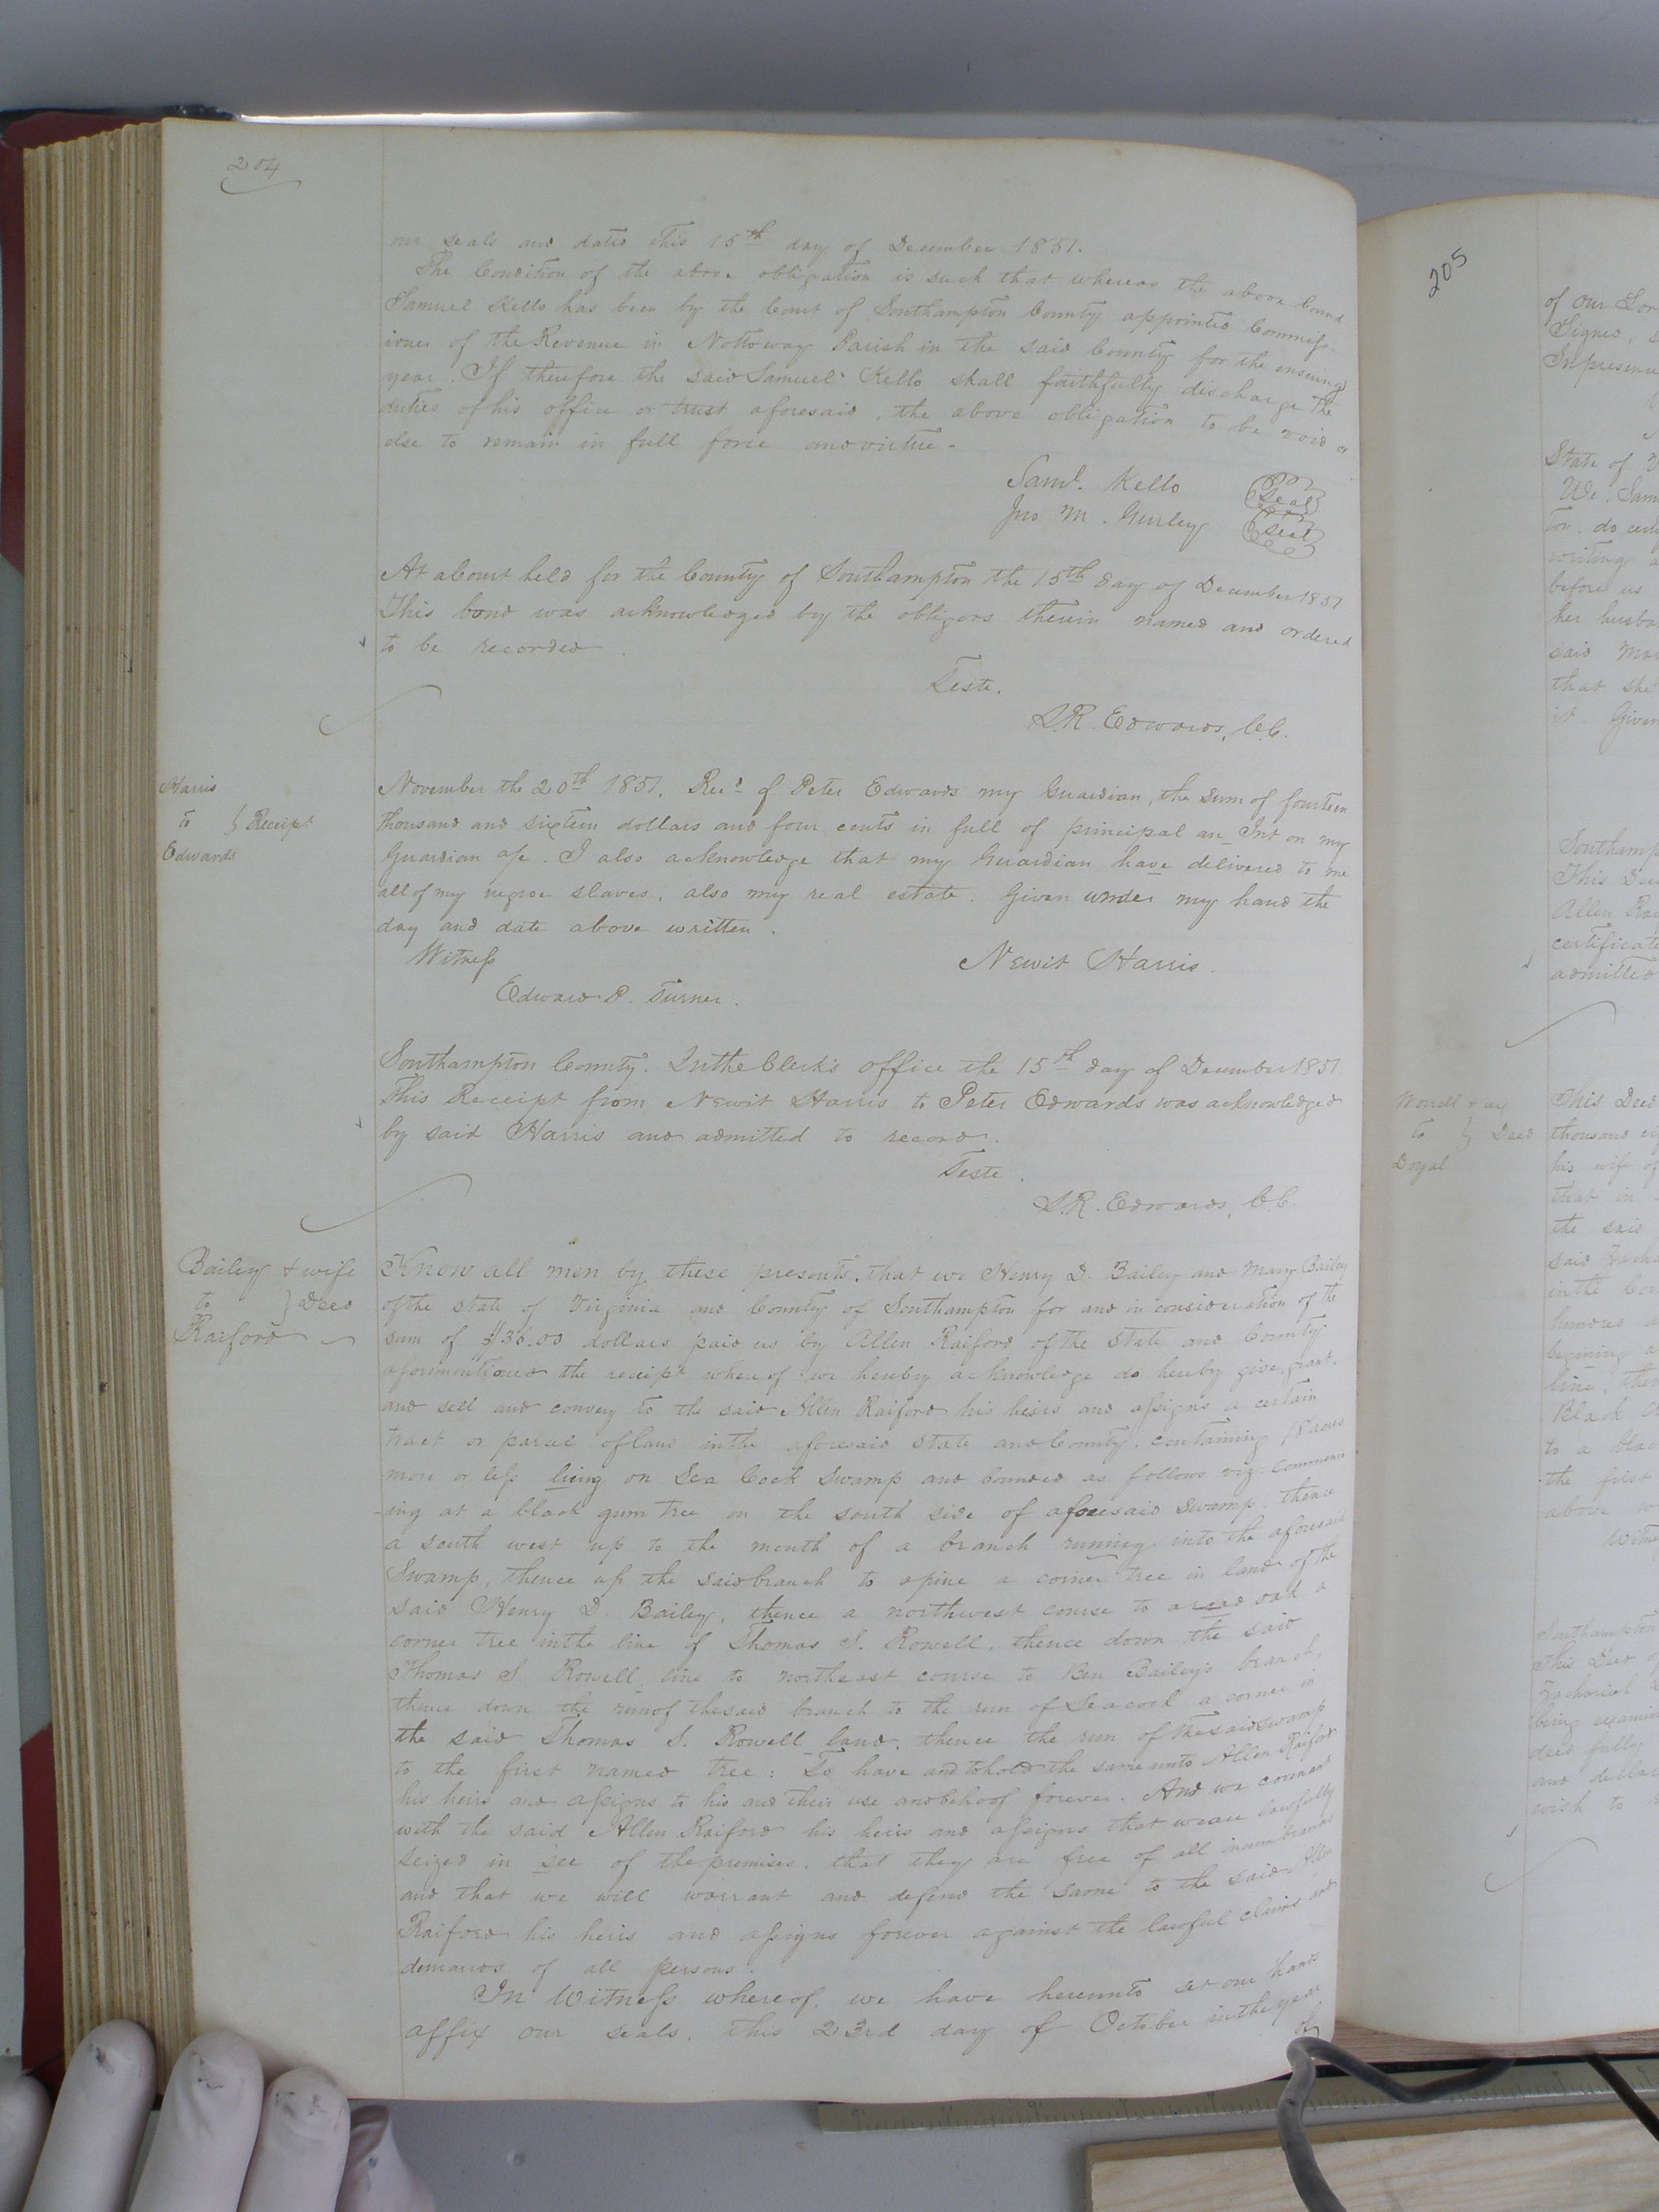 204
our seals and dated this 15th day of December 1851.
The Condition of the above obligation is such that whereas the above bound
Samuel Kello has been by the Court of Southampton County appointed Commiss-
ioner of the Revenue in Nottoway Parish in the said County for the ensuing
year. If therefore the said Samuel Kello shall faithfully discharge the
duties of his office or trust aforesaid, the above obligation to be void or
else to remain in full force and virtue -
Saml. Kello Seal
Jno M. Gurley Seal
At a Court held for the County of Southampton the 15th day of December 1851
This bond was acknowledged by the obligors therein named and ordered
to be recorded.
Teste.
L.R. Edwards, C.C.
Harris
to } Receipt
Edwards
November the 20th 1851. Recd of Peter Edwards my Guardian, the sum of fourteen
thousand and sixteen dollars and four cents in full of principal an Int on my
Guardian a/c. I also acknowledge that my Guardian have delivered to me
all of my negroe slaves, also my real estate. Given under my hand the
day and date above written.
Witness Newit Harris.
Edward P. Turner.
Southampton County. In the Clerk's office the 15th day of December 1851
This Receipt from Newit Harris to Peter Edwards was acknowledged
by said Harris and admitted to record.
Teste.
L.R. Edwards, C.C.
Bailey & wife
to } Deed
Raiford
Know all men by these presents, that we Henry D. Bailey and Mary Bailey
of the state of Virginia and County of Southampton for and in consideration of the
sum of $36.00 dollars paid us by Allen Raiford of the state and County
aforementioned the receipt whereof we hereby acknowledge do hereby give, grant,
and sell and convey to the said Allen Raiford his heirs and assigns a certain
tract or parcel of land in the aforesaid state and County, containing 18 acres
more or less lieing on Sea Cock Swamp and bounded as follows viz: commenc
-ing at a black gum tree on the south side of aforesaid swamp, thence
a south west up to the mouth of a branch running into the aforesaid
Swamp, thence up the said branch to a pine a corner tree in land of the
said Henry D. Bailey, thence a northwest course to a read oak a
corner tree in the line of Thomas S. Rowell, thence down the said
Thomas S. Rowell line to northeast course to Ben Bailey's branch,
thence down the run of the said branch to the run of Seacock a corner in
the said Thomas S. Rowell land, thence the run of the said swamp
to the first named tree: To have and to hold the same unto Allen Raiford
his heirs and assigns to his and their use and behoof forever. And we covenant
with the said Allen Raiford his heirs and assigns that we are lawfully
seized in see of the premises, that they are free of all incumbrances
and that we will warrant and defend the same to the said Allen
Raiford his heirs and assigns forever against the lawful claims and
demands of all persons.
In Witness whereof, we have hereunto set our hands
affix our seals, this 23rd day of October in the year
of
205
of our Lor
Signed, s
In presence
State of V
We, Sam
ton, do cert
writing a
before us
her husba
said Mar
that she
it. Given
Southamp
This Dee
Allen Rai
certificate
admitted
to } Deed
Doyal
This Deed
thousand eig
his wife of
that in
the said
in the Cou
hundred a
begining a
line, then
Black
to a blac
the first
above w
Witne
Southampton
This Deed of
Zachariah
being examin
deed fully
and declar
wish to r